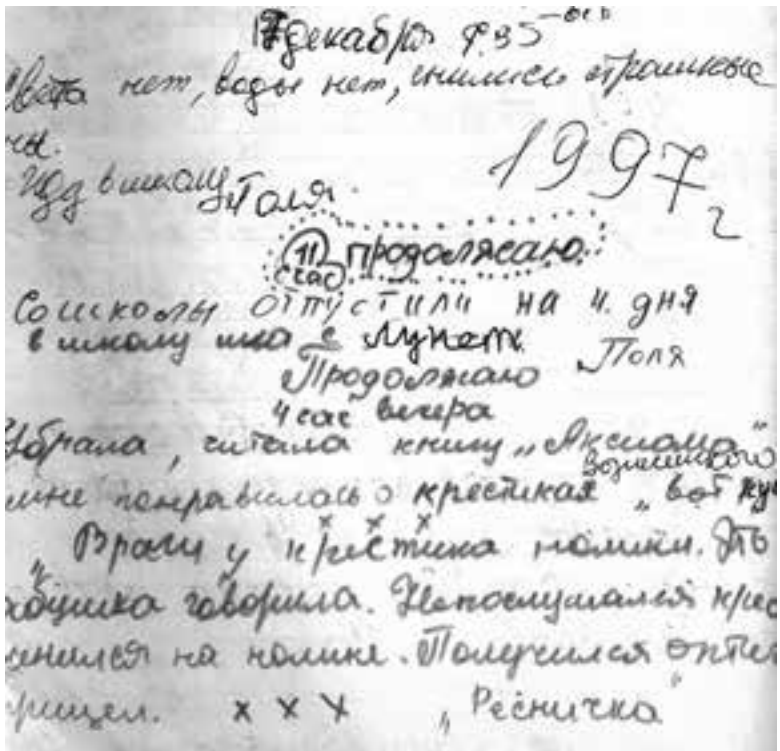 17 декабря 9.35
Света нет, воды нет, снились страшные
сны.
1997 г
Иду в школу. Поля.
11 час продолжаю.
Со школы отпустили на 4. дня
в школу шла с
Продолжаю Поля
4 час вечера
Убрала, читала книгу „Аксиома"
Вознесенского
мне понравилось о крестиках „вот
„Враги у крестика нолики. Это
бабушка говорила. Непослушался
женился на нолике. Получился
прицел. x x x „Ресничка"